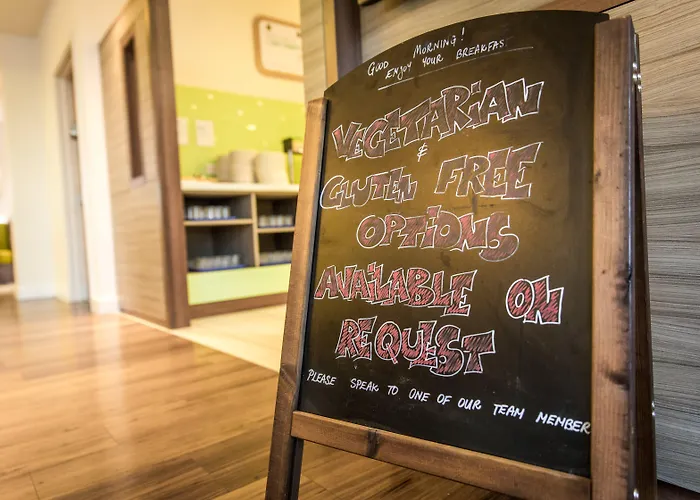 GOOD MORNING!
ENJOY YOUR BREAKFAS
VEGETARIAN
&
GLUTEN FREE
OPTIONS
AVAILABLE ON
REQUEST
PLEASE SPEAK TO ONE OF OUR TEAM MEMBER